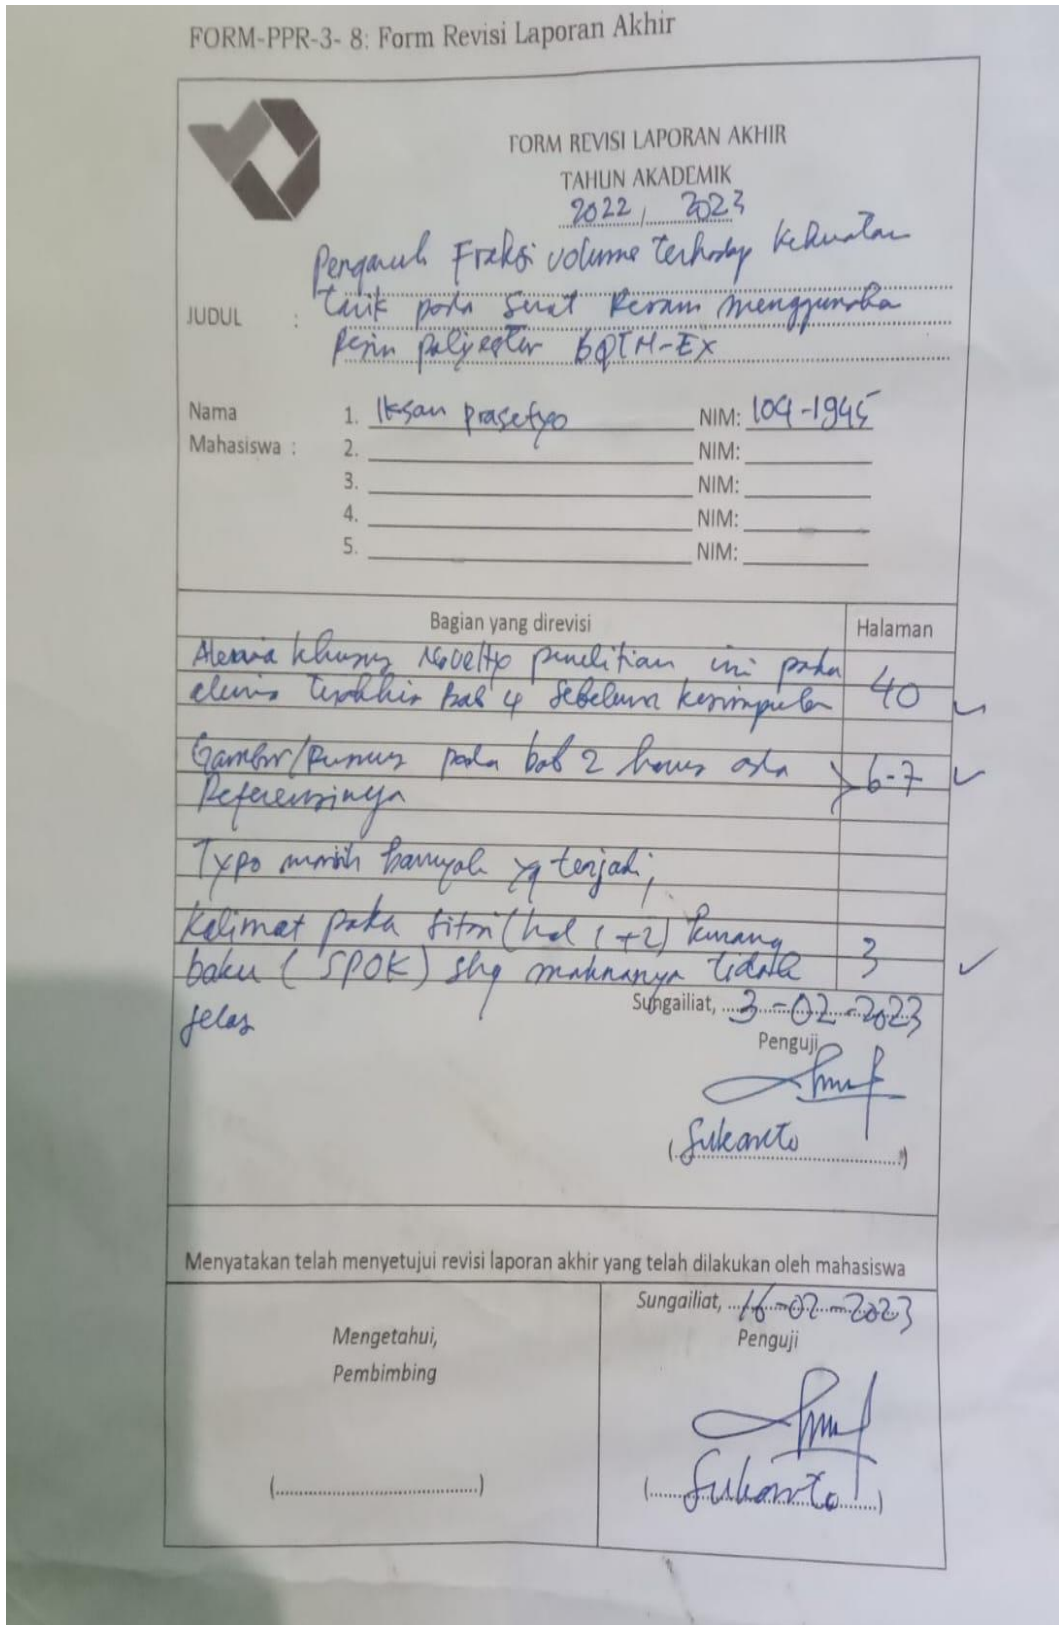 FORM-PPR-3- 8: Form Revisi Laporan Akhir
FORM REVISI LAPORAN AKHIR
TAHUN AKADEMIK
2022 / 2023
Pengaruh Fraksi volume terhadap Kekuatan
JUDUL : tarik pada Serat Resam menggunaka
Resin polyester BQTN-EX
Nama Mahasiswa :
1. Iksan prasetyo NIM: 104-1945
2. NIM:
3. NIM:
4. NIM:
5. NIM:
Bagian yang direvisi Halaman
khusus Novelty penelitian ini pada
terakhir Bab 4 sebelum kesimpulan 40
Gambar/Rumus pada bab 2 harus ada 6-7
Referensinya
Typo masih banyak yg terjadi,
Kalimat pada (hal 1+2) kurang 3
baku (SPOK) shg maknanya tidak
jelas
Sungailiat, 3-02-2023
Penguji
(Sukanto)
Menyatakan telah menyetujui revisi laporan akhir yang telah dilakukan oleh mahasiswa
Mengetahui,
Pembimbing
(..........)
Sungailiat, 16-02-2023
Penguji
(Sukanto)